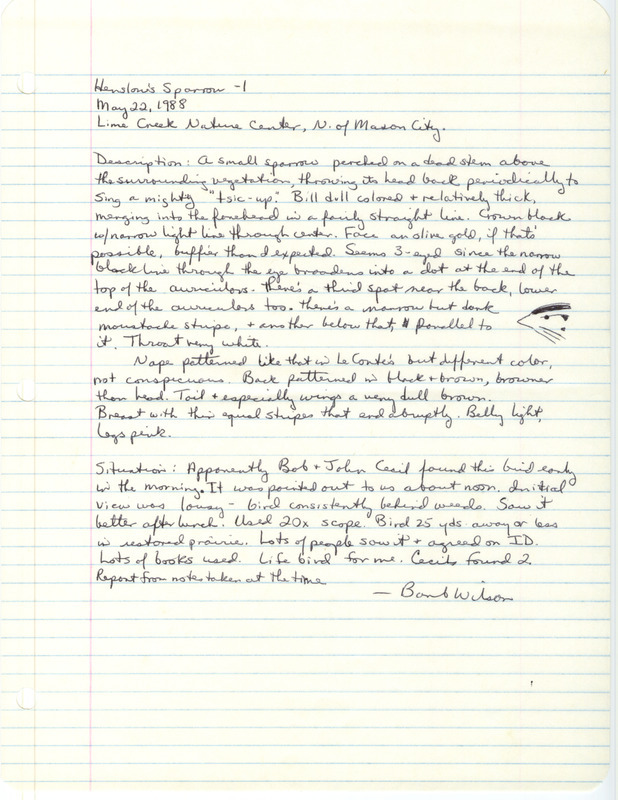 Henslow's Sparrow -1
May 22, 1988
Lime Creek Nature Center, N. of Mason City.
Description: A small sparrow perched on a dead stem above
the surrounding vegetation, throwing its head back periodically to
sing a mighty "tsic-up." Bill dull colored + relatively thick,
merging into the forehead in a fairly straight line. Crown black
w/narrow light line through center. Face an olive gold, if that's
possible, buffier than I expected. Seems 3-eyed since the narrow
black line through the eye broadens into a dot at the end of the
top of the auriculars. There's a third spot near the back, lower
end of the auriculars too. There's a narrow but dark
moustache stripe, + another below that, parallel to
it. Throat very white.
Nape patterned like that in LeConte's but different color,
not conspicuous. Back patterned in black + brown, browner
than head. Tail + especially wings a very dull brown.
Breast with thin equal stripes that end abruptly. Belly light,
legs pink.
Situation: Apparently Bob + John Cecil found this bird early
in the morning. It was pointed out to us about noon. Initial
view was lousy - bird consistently behind weeds. Saw it
better after lunch. Used 20x scope. Bird 25 yds. away or less
in restored prairie. Lots of people saw it + agreed on ID.
Lots of books used. Life bird for me. Cecils found 2.
Report from notes taken at the time
— Barb Wilson